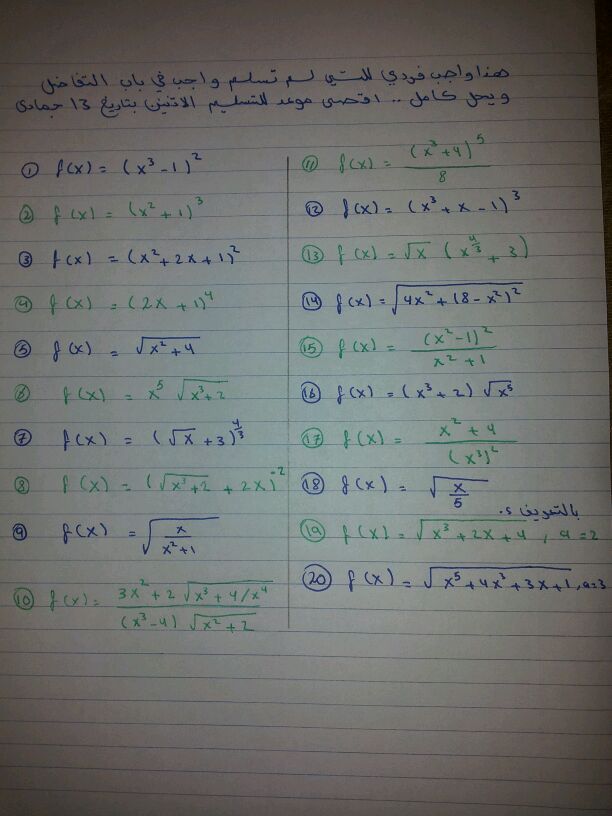 هذا واجب فردي للتي لم تسلم واجب في باب التفاضل
ويحل كامل .. اقصى موعد للتسليم الاثنين بتاريخ 13 جمادى
① f(x) = (x³ - 1)²
② f(x) = (x² + 1)³
③ f(x) = (x² + 2x + 1)²
④ f(x) = (2x + 1)⁴
⑤ f(x) = √(x² + 4)
⑥ f(x) = x⁵ √(x³ + 2)
⑦ f(x) = (√x + 3)^(4/3)
⑧ f(x) = (√(x³ + 2) + 2x)⁻²
⑨ f(x) = √(x / (x² + 1))
⑩ f(x) = (3x² + 2 √(x³ + 4/x⁴)) / ((x³ - 4) √(x² + 2))
⑪ f(x) = (x³ + 4)⁵ / 8
⑫ f(x) = (x³ + x - 1)³
⑬ f(x) = √x (x^(4/3) + 3)
⑭ f(x) = √(4x² + (8 - x²)²)
⑮ f(x) = (x² - 1)² / (x² + 1)
⑯ f(x) = (x³ + 2) √x⁵
⑰ f(x) = (x² + 4) / (x³)²
⑱ f(x) = √(x / 5)
بالتعريف
⑲ f(x) = √(x³ + 2x + 4) , a = 2
⑳ f(x) = √(x⁵ + 4x³ + 3x + 1) , a = 3